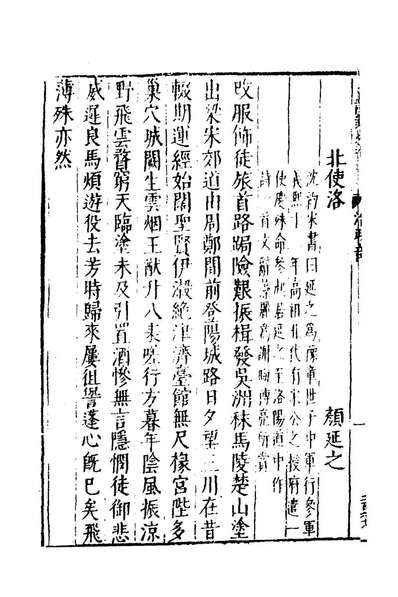 北使洛　顏延之
沈約宋書曰延之為豫章世子中軍行參軍
義熙十二年高祖北伐有宋公之授府遣一
使慶殊命參起居延之至洛陽道中作
詩一首文辭藻麗為謝晦傅亮所賞
改服飭徒旅首路跼險艱振楫發吳洲秣馬陵楚山塗
出梁宋郊道由周鄭間前登陽城路日夕望三川在昔
輟期運經始闊聖賢伊瀔絕津濟臺館無尺椽宮陛多
巢穴城闕生雲烟王猷升八表嗟行方暮年陰風振涼
野飛雲瞀窮天臨塗未及引置酒慘無言隱憫徒御悲
威遲良馬煩遊役去芳時歸來屢徂諐蓬心既已矣飛
薄殊亦然